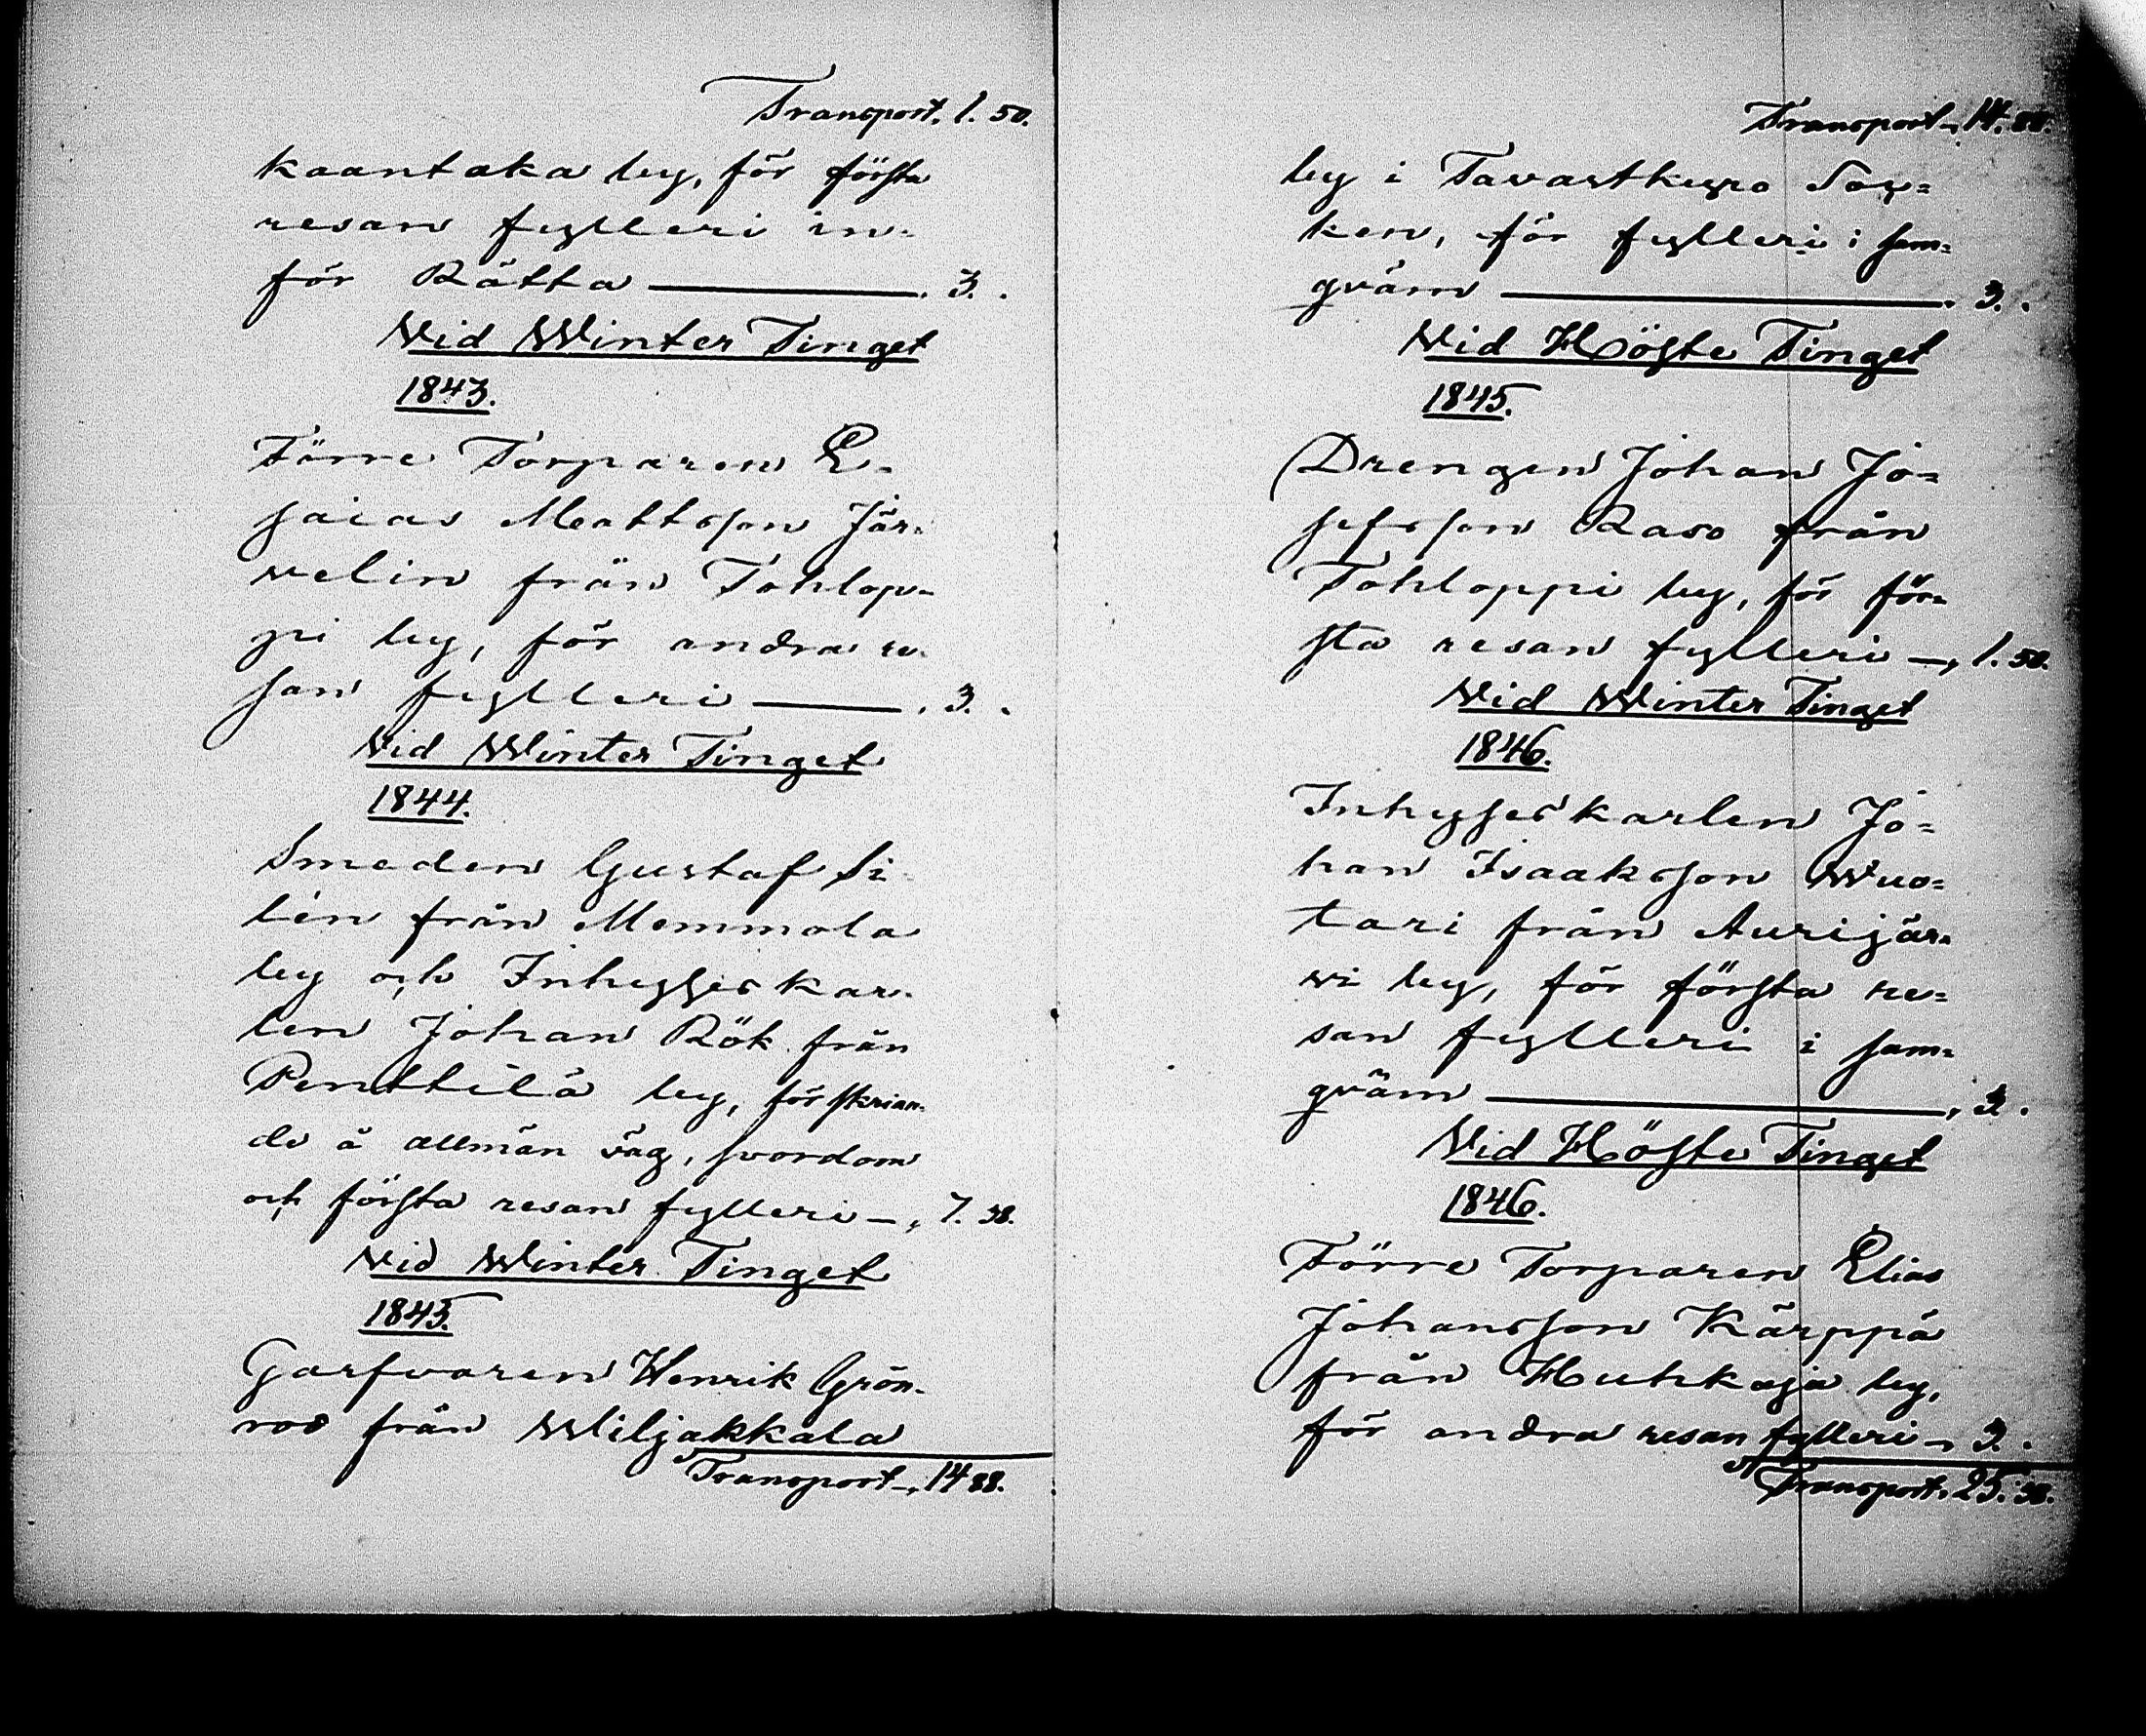 Transport. 1. 50.
kaantaka by, för första
resan fylleri in-
för Rätta —— . 3. .
Vid Winter Tinget
1843.
Förre Torparen E-
saias Mattsson Jär-
velin från Tohlop-
pi by, för andra re-
san fylleri —— . 3. .
Vid Winter Tinget
1844.
Smeden Gustaf Si-
lén från Mommola
by och Inhysses kar-
len Johan Rök från
Penttilä by, för skrian-
de å allmän väg, svordom
och första resan fylleri —, 7. 38.
Vid Winter Tinget
1845.
Garfvaren Henrik Grön-
roos från Wiljakkala
Transport —, 14 88.
Transport —, 14. 88.
by i Tavastkyro Sog=
ken, för fylleri i sam=
qväm —— . 3. .
Vid Höste Tinget
1845.
Drengen Johan Jo=
sefsson Raso från
Tohloppi by, för för=
sta resan fylleri —, 1. 50.
Vid Winter Tinget
1846.
Inhyses karlen Jo=
han Isaaksson Wuo=
tari från Aurijär=
vi by, för första re=
san fylleri i sam=
qväm ——, 3. .
Vid Höste Tinget
1846.
Förre Torparen Elias
Johansson Kärppä
från Huhkaja by,
för andra resan fylleri —, 3. .
Transport. 25. 38.